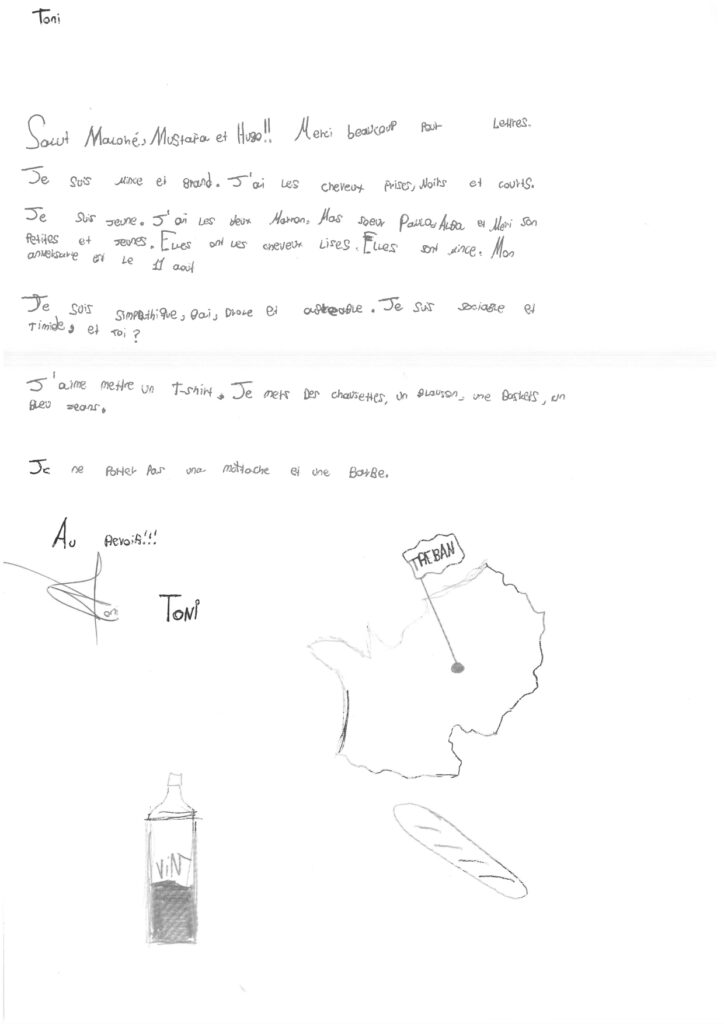 Toni
Salut Maloné, Mustafa et Hugo!! Merci beaucoup pour Lettres.
Je suis mince et grand. J'ai Les cheveux frises, Noirs et courts.
Je suis Jeune. J'ai Les yeux Marron. Mas soeur Paula, Alba et Meri son
Petites et jeunes. Elles ont Les cheveux Lises. Elles sont mince. Mon
aniversaire est le 11 aout
Je suis simpathique, gai, Drole et Je suis sociable et
Timide, et toi?
J'aime mettre un T-shirt. Je mets Des chausettes, un Blouson, une Baskets, un
Bleu Jeans.
Je ne Porter Pas una mostache et une Barbe.
Au Revoir!!!
Toni
TREBAN
VIN